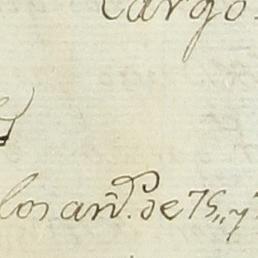 Cargo
los añ.ᵒ de 75,, y